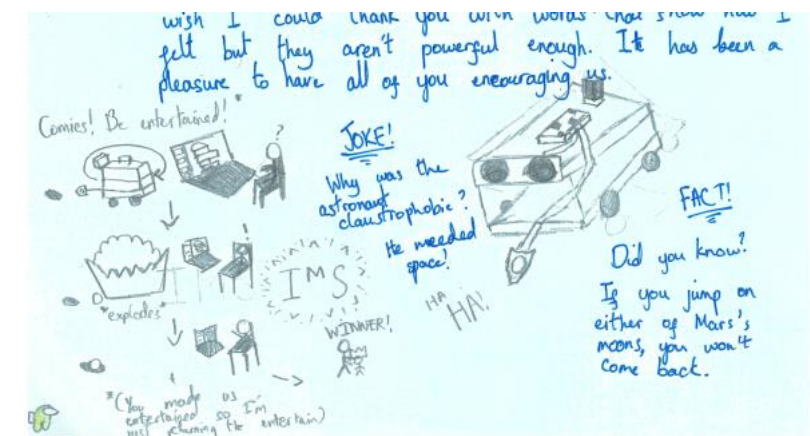 wish I could thank you with words that show how I
felt but they aren't powerful enough. It has been a
pleasure to have all of you encouraging us.
Comics! Be entertained!*
?
!
*explodes*
IMS
WINNER!
*(You made us
entertained so I'm
just returning the entertain)
JOKE!
Why was the
astronaut
claustrophobic?
He needed
space!
HA
HA!
FACT!
Did you know?
If you jump on
either of Mars's
moons, you won't
come back.